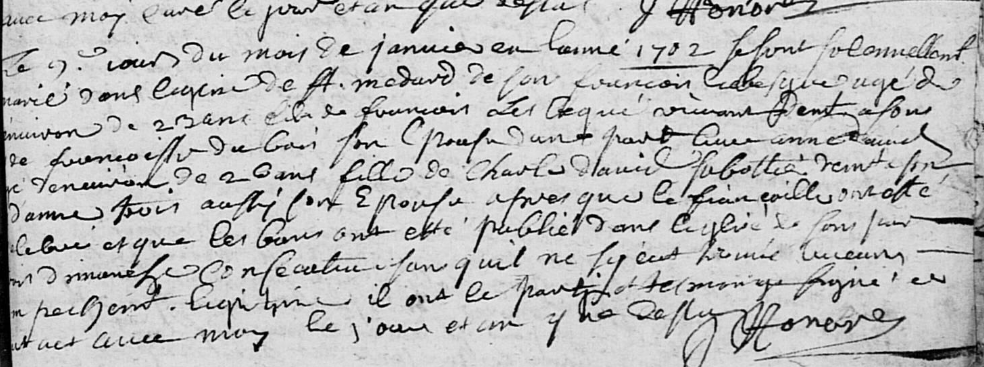 avec moy curé le jour et an que dessus J Honoré
Le 9e iour du mois de janvier en lanné 1702 se sont solennellent
marié dans leglise de St. medard de son francois age de
environ de 23 ans fils de francois vivant demt a son
de francoisse du bois son Epouse dune part avec anne david
de 20 ans fille de Charle david sabottié demt a son
danne aussi son Epouse apres que le fiancaille ont esté
celebré et que les bans ont esté publié dans leglise de sons par
dimanche Consecutive san quil ne sy est trouvé aucuns
empechemt. legitime il ont le partis et tesmoin signé ce
act avec moy le jour et an que dessus J Honoré